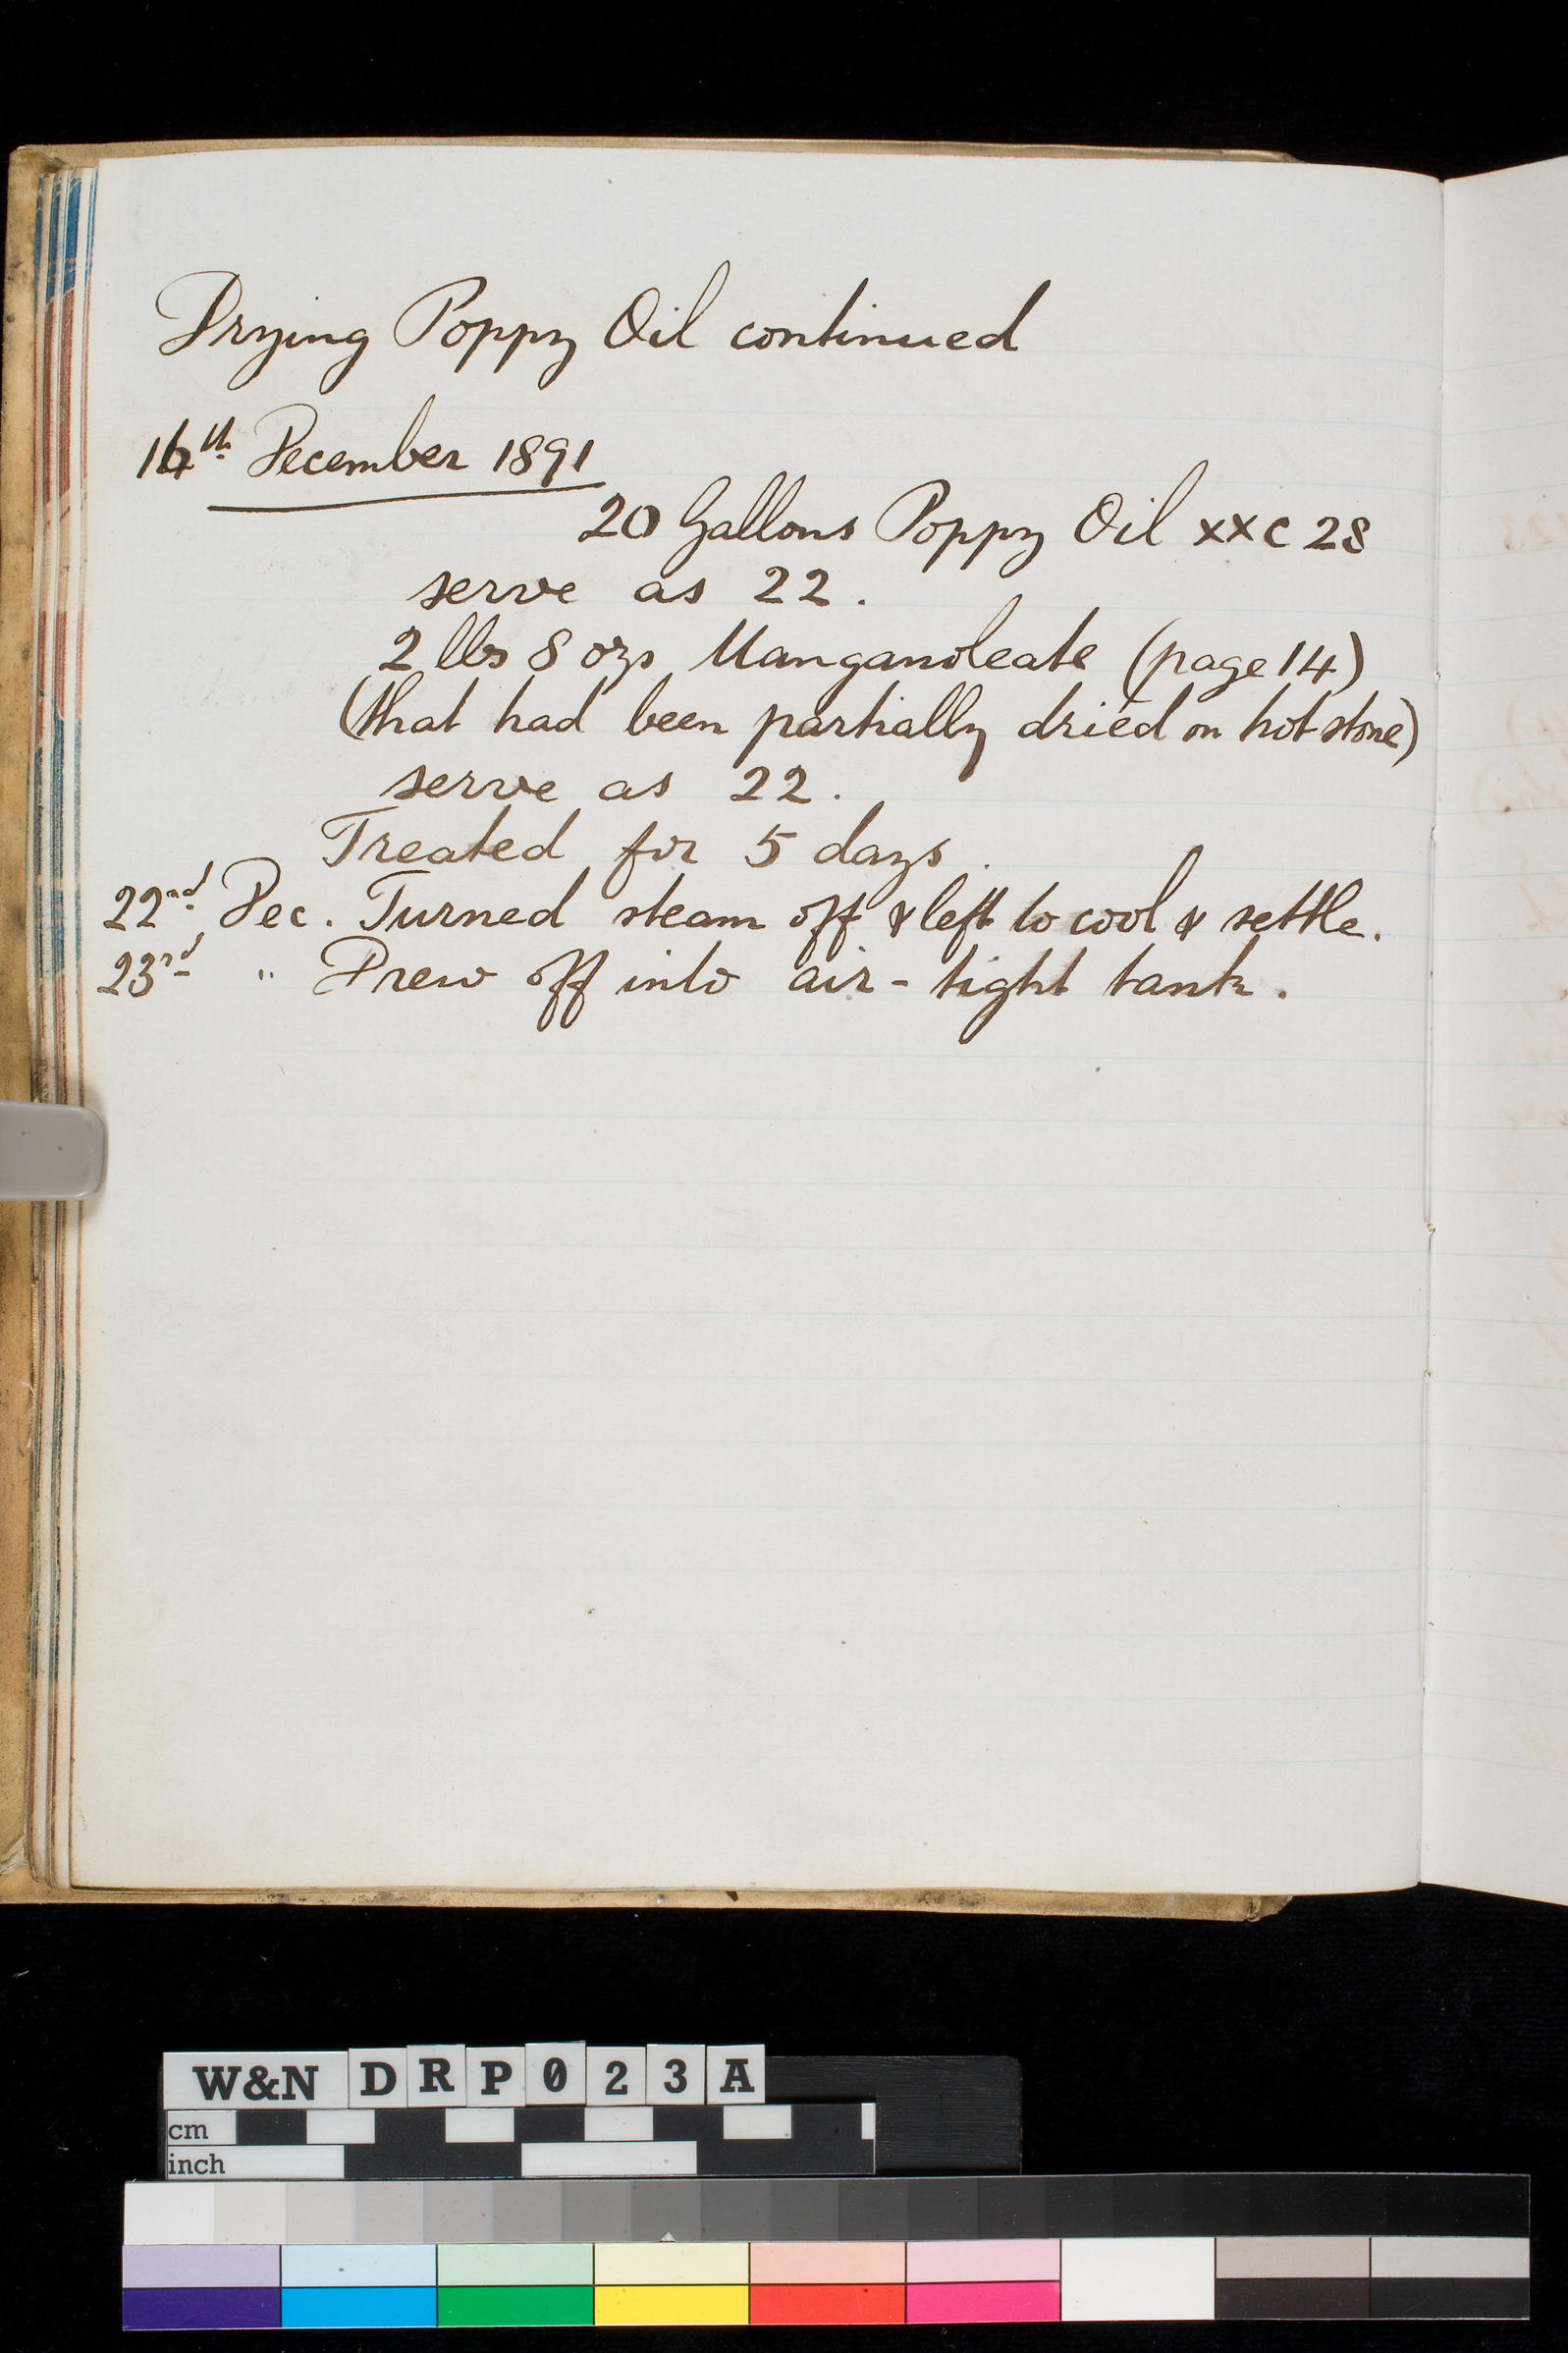 Drying Poppy Oil continued
16th December 1891
20 Gallons Poppy Oil xxc 28
serve as 22.
2 lbs 8 ozs Manganoleate (page 14)
(that had been partially dried on hot stone)
serve as 22.
Treated for 5 days.
22nd Dec. Turned steam off & left to cool & settle.
23rd " Drew off into air-tight tank.
W&N DRP023A
cm
inch